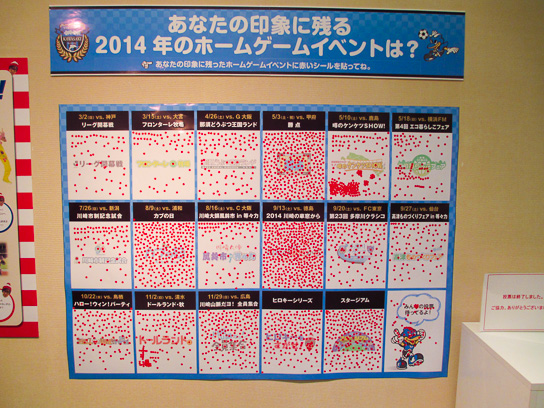 あなたの印象に残る
2014 年のホームゲームイベントは？
あなたの印象に残ったホームゲームイベントに赤いシールを貼ってね。
3/2(日) vs. 神戸
リーグ開幕戦
3/15(土) vs. 大宮
フロンターレ牧場
4/26(土) vs. G大阪
那須どうぶつ王国ランド
5/3(土・祝) vs. 甲府
勝点
5/10(土) vs. 鹿島
噂のケンケツSHOW!
5/18(日) vs. 横浜FM
第4回 エコ暮らしこフェア
7/26(土) vs. 新潟
川崎市制記念試合
8/9(土) vs. 浦和
カブの日
8/16(土) vs. C大阪
川崎大願風鈴市 in 等々力
9/13(土) vs. 徳島
2014 川崎の車窓から
9/20(土) vs. FC東京
第23回 多摩川クラシコ
9/27(土) vs. 仙台
高津ものづくりフェア in 等々力
10/22(水) vs. 鳥栖
ハロー！ウィン！パーティ
11/2(日) vs. 清水
ドールランド・秋
11/29(土) vs. 広島
川崎山脈だヨ！全員集合
ヒロキーシリーズ
スタージアム
みんなの投票
待ってるよ！
投票は終了しました。
ご協力、ありがとうございま